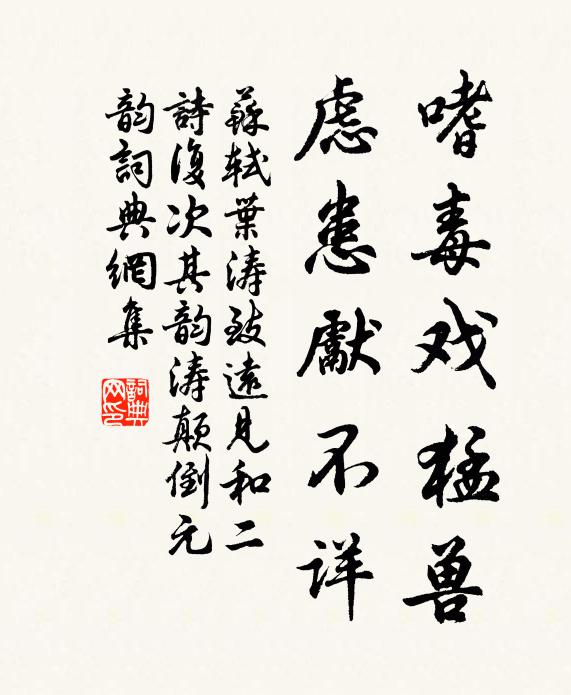 嗜毒戏猛兽
虑患獻不详
蘇轼葉濤致遠見和二
詩復次其韵濤颠倒元
韵詞典網集
詞典网印